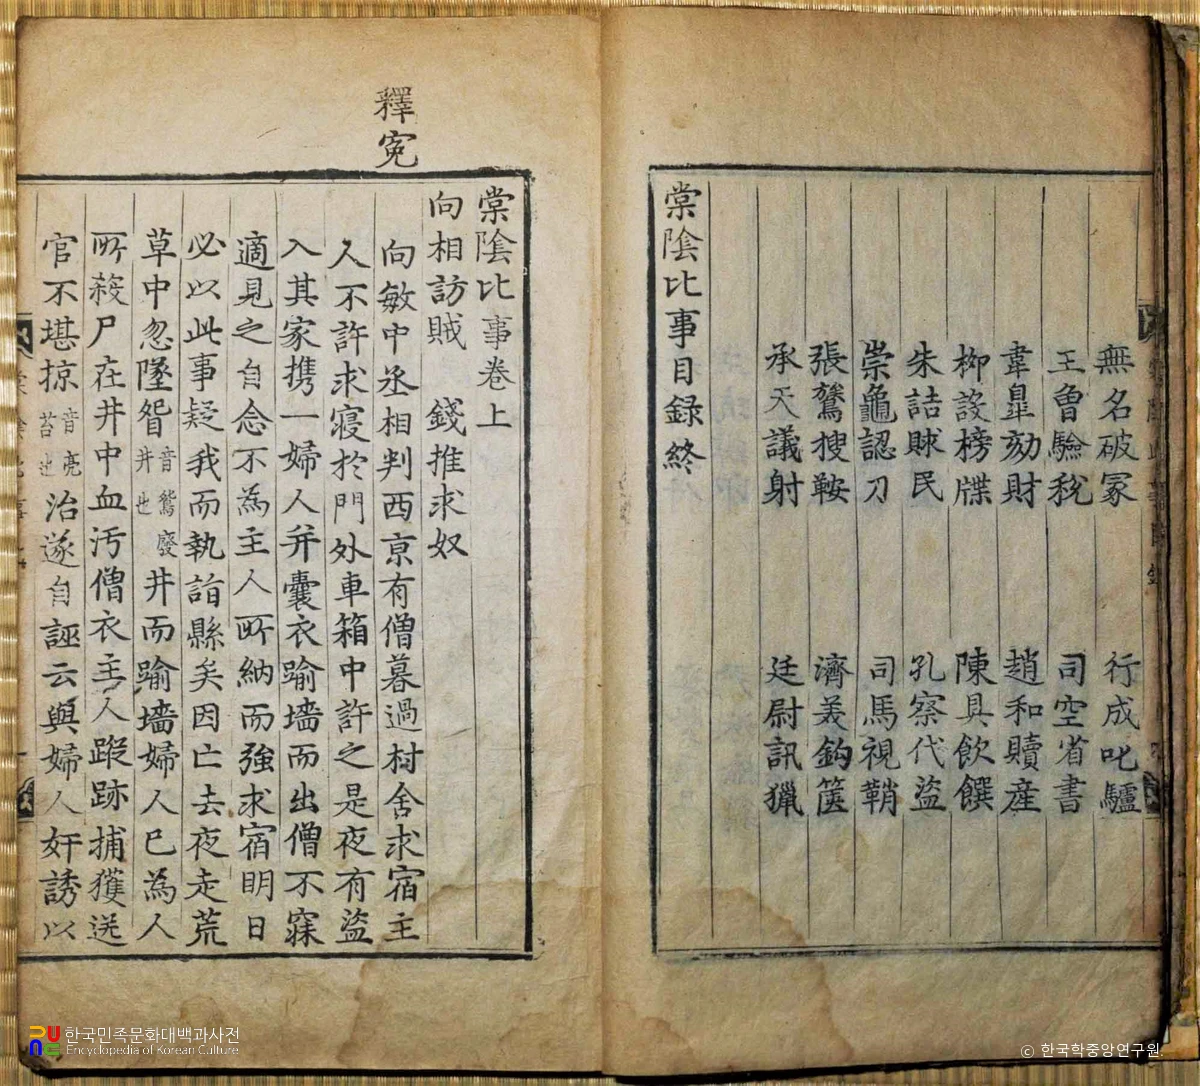 無名破冢 行成叱驢
王曽驗稅 司空省書
韋臯劾財 趙和贖産
柳設榜牒 陳具飲饌
朱詰賕民 孔察代盜
崇龜認刀 司馬視鞘
張鷟搜鞍 濟美鈎篋
承天議射 廷尉訊獵
棠陰比事目録終
釋寃
棠陰比事卷上
向相訪賊 錢推求奴
向敏中丞相判西京有僧暮過村舍求宿主
人不許求寢於門外車箱中許之是夜有盜
入其家携一婦人并囊衣踰墻而出僧不寐
適見之自念不為主人所納而強求宿明日
必以此事疑我而執詣縣矣因亡去夜走荒
草中忽墜眢音鴛廢井也井而踰墻婦人已為人
所殺尸在井中血汚僧衣主人蹤跡捕獲送
官不堪掠音亮笞也治遂自誣云與婦人奸誘以
한국민족문화대백과사전
Encyclopedia of Korean Culture
© 한국학중앙연구원